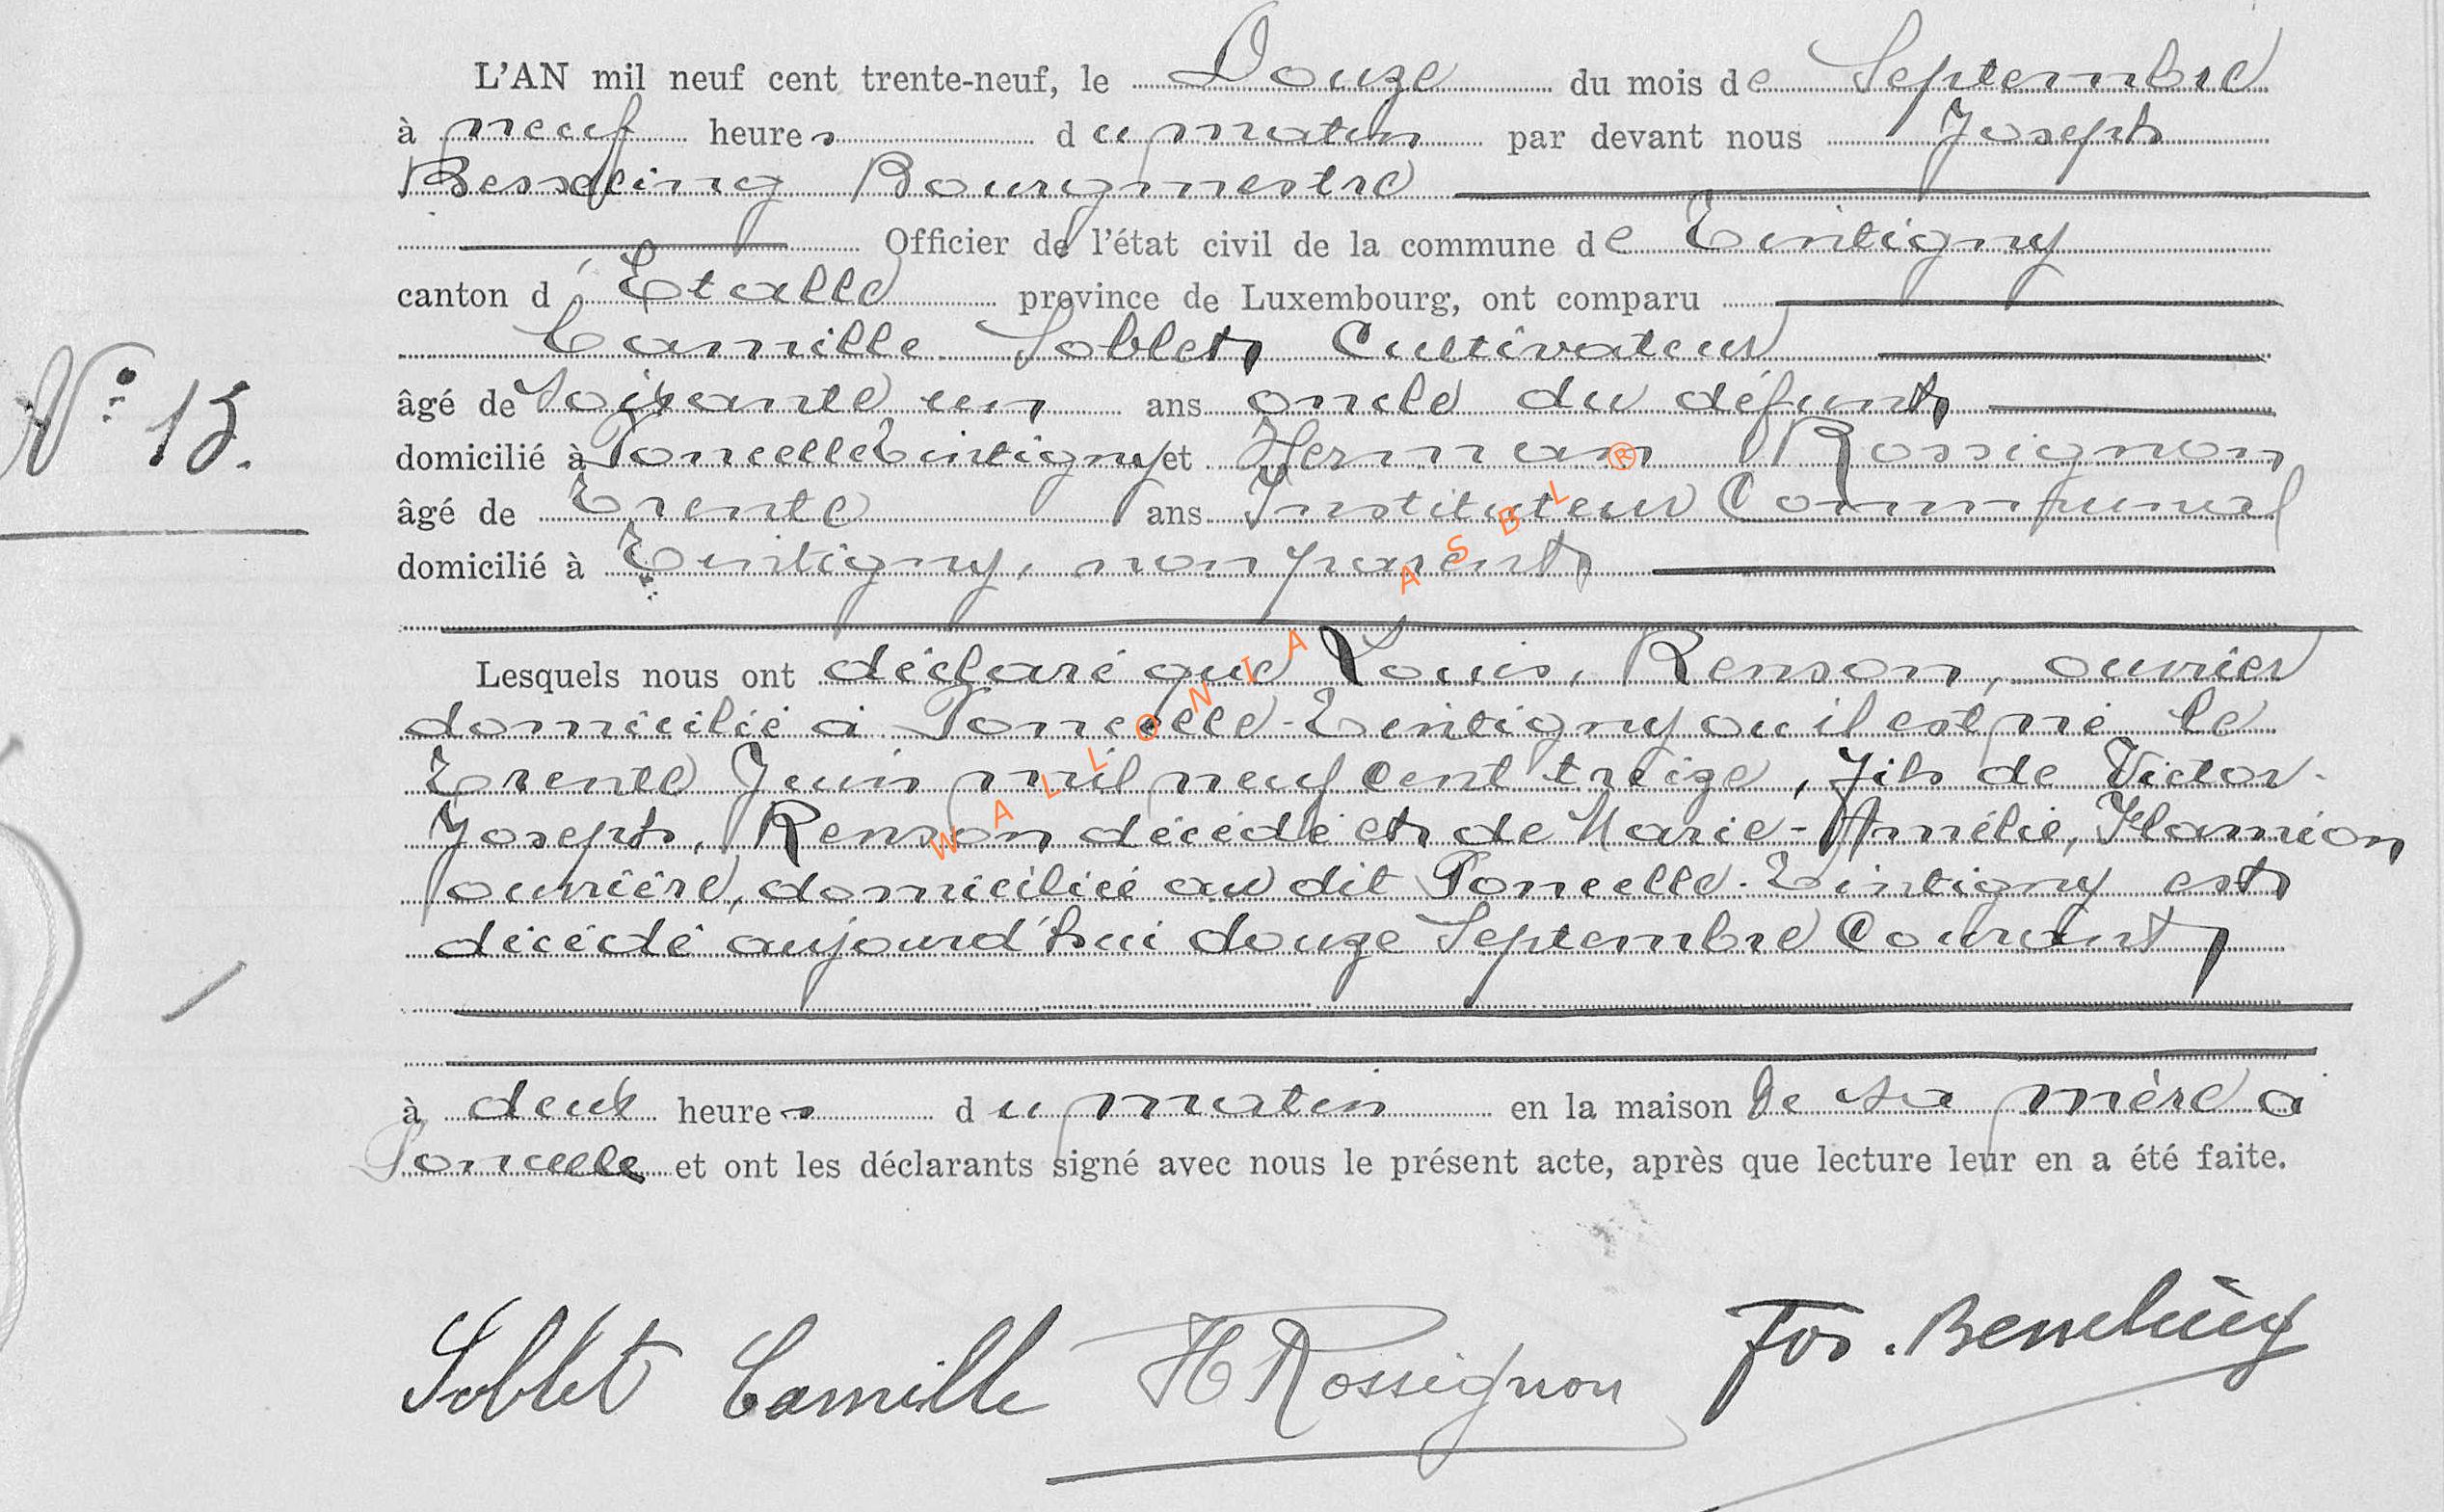 L'AN mil neuf cent trente-neuf, le Douze du mois de Septembre
à neuf heures du matin par devant nous Joseph
Besseling Bourgmestre
Officier de l'état civil de la commune de Tintigny
canton d'Etalle province de Luxembourg, ont comparu
Camille Soblet Cultivateur
N° 15.
âgé de soixante un ans oncle du défunt
domicilié à Poncelle Tintigny et Herman Rossignon
âgé de Trente ans Instituteur Communal
domicilié à Tintigny, non parent
Lesquels nous ont déclaré que Louis, Renson, ouvrier
domicilié à Poncelle-Tintigny ou il est né le
Trente Juin mil neuf cent treize, fils de Victor-
Joseph, Renson décédé et de Marie-Amélie, Hamion
ouvrière, domiciliée au dit Poncelle-Tintigny est
décédé aujourd'hui douze Septembre Courant
à deux heures du matin en la maison de sa mère à
Poncelle et ont les déclarants signé avec nous le présent acte, après que lecture leur en a été faite.
Soblet Camille H Rossignon Jos. Besseling
WALLONIA ASBL ®